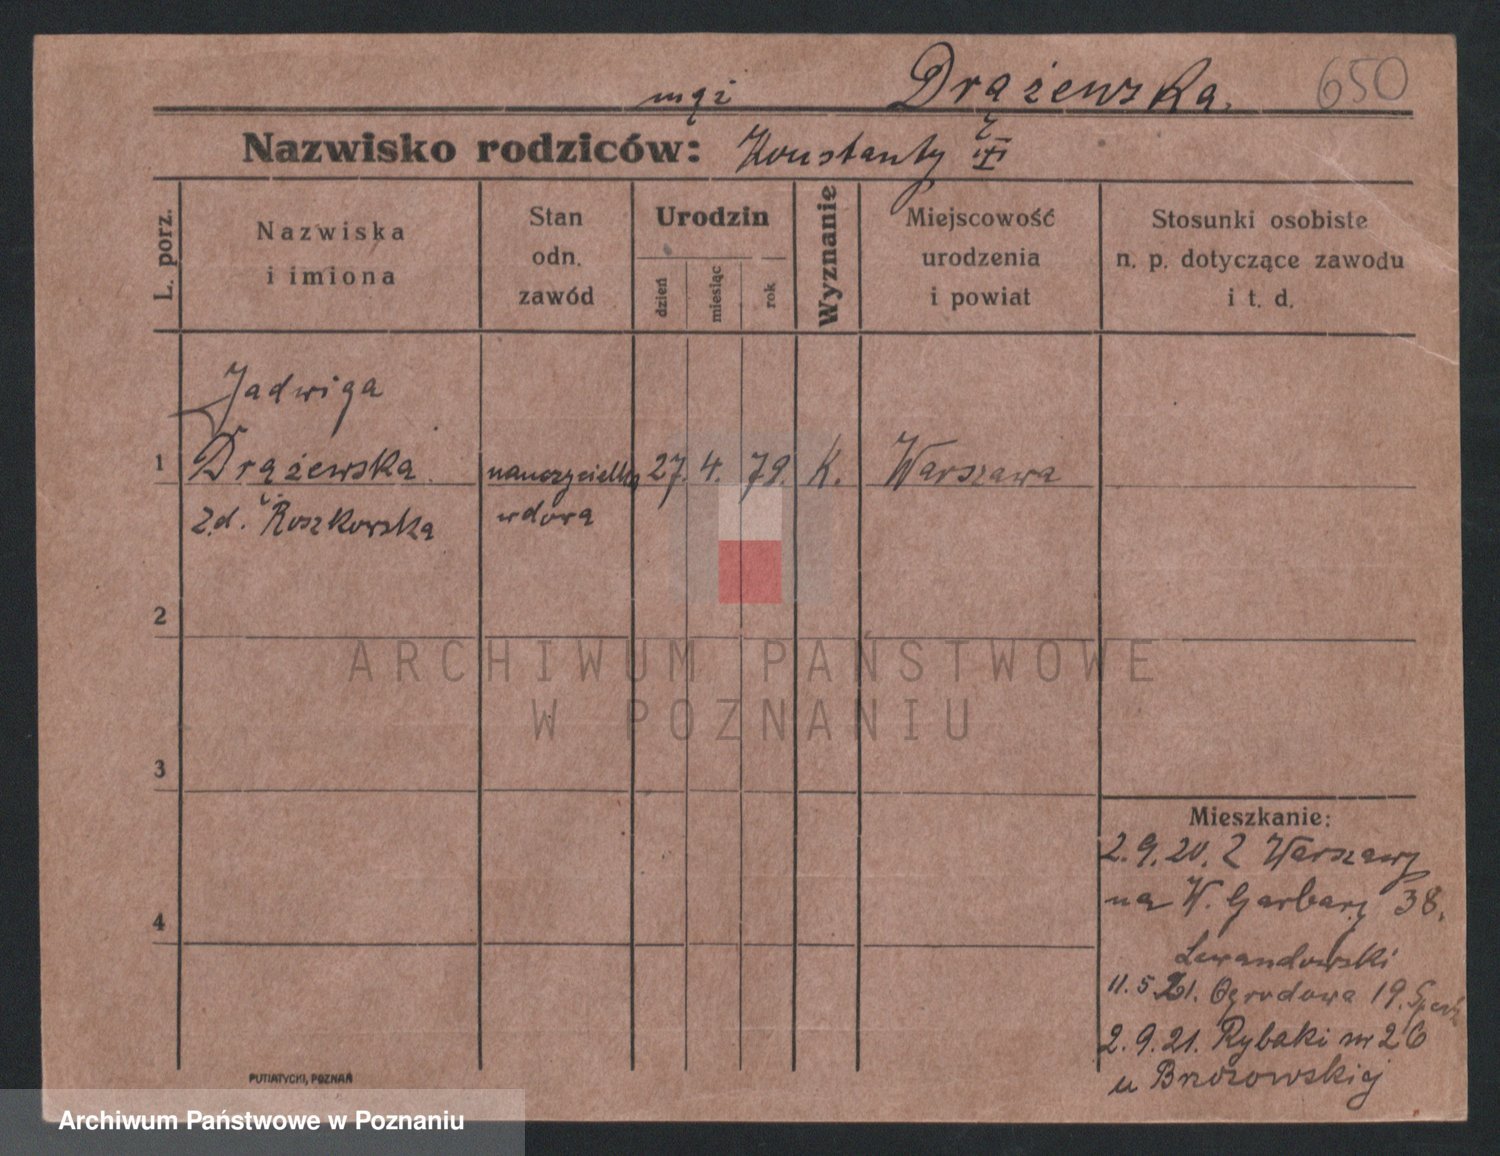 mąż Drążewska. 650
Nazwisko rodziców: Konstanty
L. porz.
Nazwiska
i imiona
Stan
odn.
zawód
Urodzin
dzień
miesiąc
rok
Wyznanie
Miejscowość
urodzenia
i powiat
Stosunki osobiste
n. p. dotyczące zawodu
i t. d.
Jadwiga
1 Drążewska nauczycielka 27. 4. 79. K. Warszawa
z d. Roszkowska wdowa
2
3
4
Mieszkanie:
2.9.20. Z Warszawy
na W. Garbary 38.
Lewandowski
11.5.21. Ogrodowa 19.
2.9.21. Rybaki nr 26
u Brzozowskiej
PUTIATYCKI, POZNAŃ
ARCHIWUM PAŃSTWOWE
W POZNANIU
Archiwum Państwowe w Poznaniu